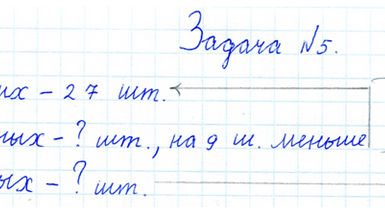 Задача №5.
их - 27 шт.
ных - ? шт., на 9 ш. меньше
ых - ? шт.